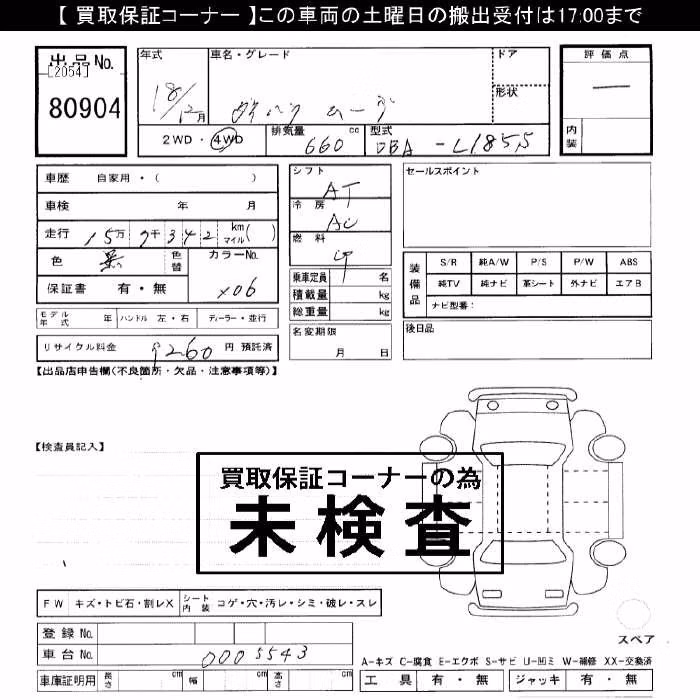 【 買取保証コーナー 】この車両の土曜日の搬出受付は17:00まで
出品No.
[2054]
80904
年式
18/12月
車名・グレード
ムーヴ
ドア
形状
2WD・4WD
排気量
660 cc
型式
DBA-L185S
評価点
内装
車歴 自家用・( )
車検 年 月
走行 15万7千342 km マイル( )
色 黒 色替 カラーNo. X06
保証書 有・無
モデル年式 年 ハンドル 左・右 ディーラー・並行
リサイクル料金 9260 円 預託済
シフト AT
冷房 AC
燃料
乗車定員 4 名
積載量 kg
総重量 kg
名変期限
月 日
セールスポイント
装備品
S/R 純A/W P/S P/W ABS
純TV 純ナビ 革シート 外ナビ エアB
ナビ型番:
後日品
【出品店申告欄(不良箇所・欠品・注意事項等)】
【検査員記入】
買取保証コーナーの為
未検査
FW キズ・トビ石・割レX シート内装 コゲ・穴・汚レ・シミ・破レ・スレ
登録No.
車台No. 0005543
車庫証明用 長さ cm 幅 cm 高さ cm
スペア
A-キズ C-腐食 E-エクボ S-サビ U-凹ミ W-補修 XX-交換済
工具 有・無 ジャッキ 有・無